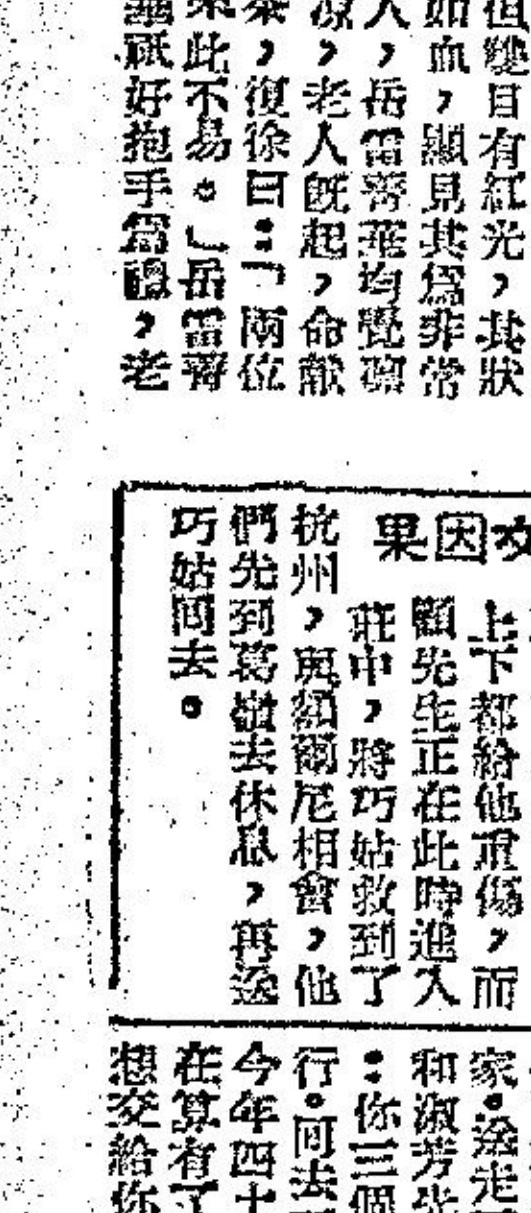 但雙目有紅光，其狀
如血，顯見其爲非常
人，岳雷菁華均覺
凉，老人旣起，命獻
茶，復徐曰：「兩位
來此不易。」岳雷菁
華祇好抱手爲禮，老
女因果
上下都給他重傷，而
顧先生正在此時進入
莊中，將巧姑救到了
杭州，與額爾尼相會，他
們先到葛嶺去休息，再送
巧姑回去。
家。送走
和淑芳
：你三個
行。回去
今年四十
在算有了
想交給你